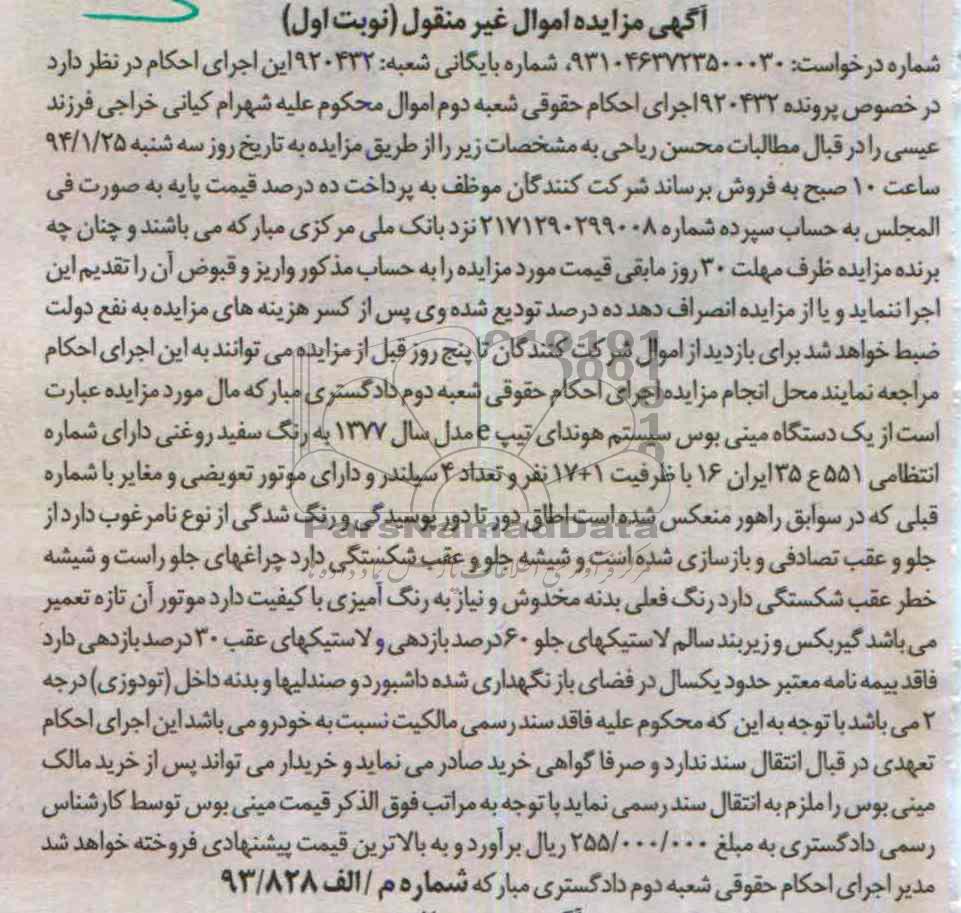 آگهی مزایده اموال غیر منقول (نوبت اول)
شماره درخواست: ۹۳۱۰۴۶۳۷۲۳۵۰۰۰۳۰، شماره بایگانی شعبه: ۹۲۰۴۳۲ این اجرای احکام در نظر دارد
در خصوص پرونده ۹۲۰۴۳۲ اجرای احکام حقوقی شعبه دوم اموال محکوم علیه شهرام کیانی خراجی فرزند
عیسی را در قبال مطالبات محسن ریاحی به مشخصات زیر را از طریق مزایده به تاریخ روز سه شنبه ۹۴/۱/۲۵
ساعت ۱۰ صبح به فروش برساند شرکت کنندگان موظف به پرداخت ده درصد قیمت پایه به صورت فی
المجلس به حساب سپرده شماره ۲۱۷۱۲۹۰۲۹۹۰۰۸ نزد بانک ملی مرکزی مبارکه می باشند و چنان چه
برنده مزایده ظرف مهلت ۳۰ روز مابقی قیمت مورد مزایده را به حساب مذکور واریز و قبوض آن را تقدیم این
اجرا ننماید و یا از مزایده انصراف دهد ده درصد تودیع شده وی پس از کسر هزینه های مزایده به نفع دولت
ضبط خواهد شد برای بازدید از اموال شرکت کنندگان تا پنج روز قبل از مزایده می توانند به این اجرای احکام
مراجعه نمایند محل انجام مزایده اجرای احکام حقوقی شعبه دوم دادگستری مبارکه مال مورد مزایده عبارت
است از یک دستگاه مینی بوس سیستم هوندای تیپ e مدل سال ۱۳۷۷ به رنگ سفید روغنی دارای شماره
انتظامی ۵۵۱ ع ۳۵ ایران ۱۶ با ظرفیت ۱+۱۷ نفر و تعداد ۴ سیلندر و دارای موتور تعویضی و مغایر با شماره
قبلی که در سوابق راهور منعکس شده است اطاق دور تا دور پوسیدگی و رنگ شدگی از نوع نامرغوب دارد از
جلو و عقب تصادفی و بازسازی شده است و شیشه جلو و عقب شکستگی دارد چراغهای جلو راست و شیشه
خطر عقب شکستگی دارد رنگ فعلی بدنه مخدوش و نیاز به رنگ آمیزی با کیفیت دارد موتور آن تازه تعمیر
می باشد گیربکس و زیربند سالم لاستیکهای جلو ۶۰ درصد بازدهی و لاستیکهای عقب ۳۰ درصد بازدهی دارد
فاقد بیمه نامه معتبر حدود یکسال در فضای باز نگهداری شده داشبورد و صندلیها و بدنه داخل (تودوزی) درجه
۲ می باشد با توجه به این که محکوم علیه فاقد سند رسمی مالکیت نسبت به خودرو می باشد این اجرای احکام
تعهدی در قبال انتقال سند ندارد و صرفا گواهی خرید صادر می نماید و خریدار می تواند پس از خرید مالک
مینی بوس را ملزم به انتقال سند رسمی نماید با توجه به مراتب فوق الذکر قیمت مینی بوس توسط کارشناس
رسمی دادگستری به مبلغ ۲۵۵/۰۰۰/۰۰۰ ریال برآورد و به بالاترین قیمت پیشنهادی فروخته خواهد شد
مدیر اجرای احکام حقوقی شعبه دوم دادگستری مبارکه شماره م / الف ۹۳/۸۲۸
ParsNamadData